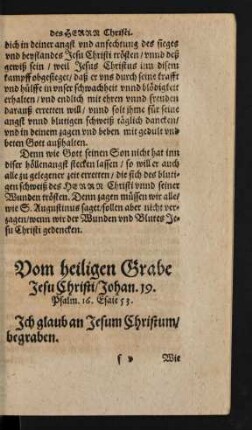 des HERRN Christi.
dich in deiner angst vnd anfechtung des sieges
vnd beystandes Jesu Christi trösten / vnnd deß
gewiß sein / weil Jesus Christus inn disem
kampff obgesieget / daß er vns durch seine krafft
vnd hülffe in vnser schwachheit vnnd blödigkeit
erhalten / vnd endlich mit ehren vnnd frewden
darauß erretten will / vnnd solt jhme für seine
angst vnnd blutigen schweiß täglich dancken /
vnd in deinem zagen vnd beben mit gedult vnd
beten Gott außhalten.
Denn wie Gott seinen Son nicht hat inn
diser höllenangst stecken lassen / so will er auch
alle zu gelegener zeit erretten / die sich des bluti-
gen schweiß des HERRN Christi vnnd seiner
Wunden trösten. Denn zagen müssen wir alle /
wie S. Augustinus saget / sollen aber nicht ver-
zagen / wenn wir der Wunden vnd Blutes Je-
su Christi gedencken.
Vom heiligen Grabe
Jesu Christi / Johan. 19.
Psalm. 16. Esaie 53.
Ich glaub an Jesum Christum /
begraben.
f v Wie